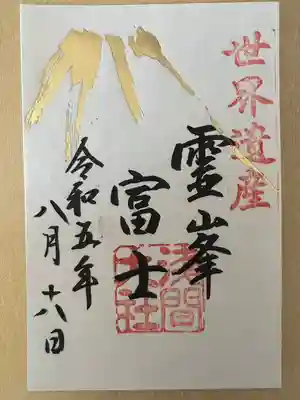 世界遺産
靈峯
富士
浅間大社
令和五年
八月十八日